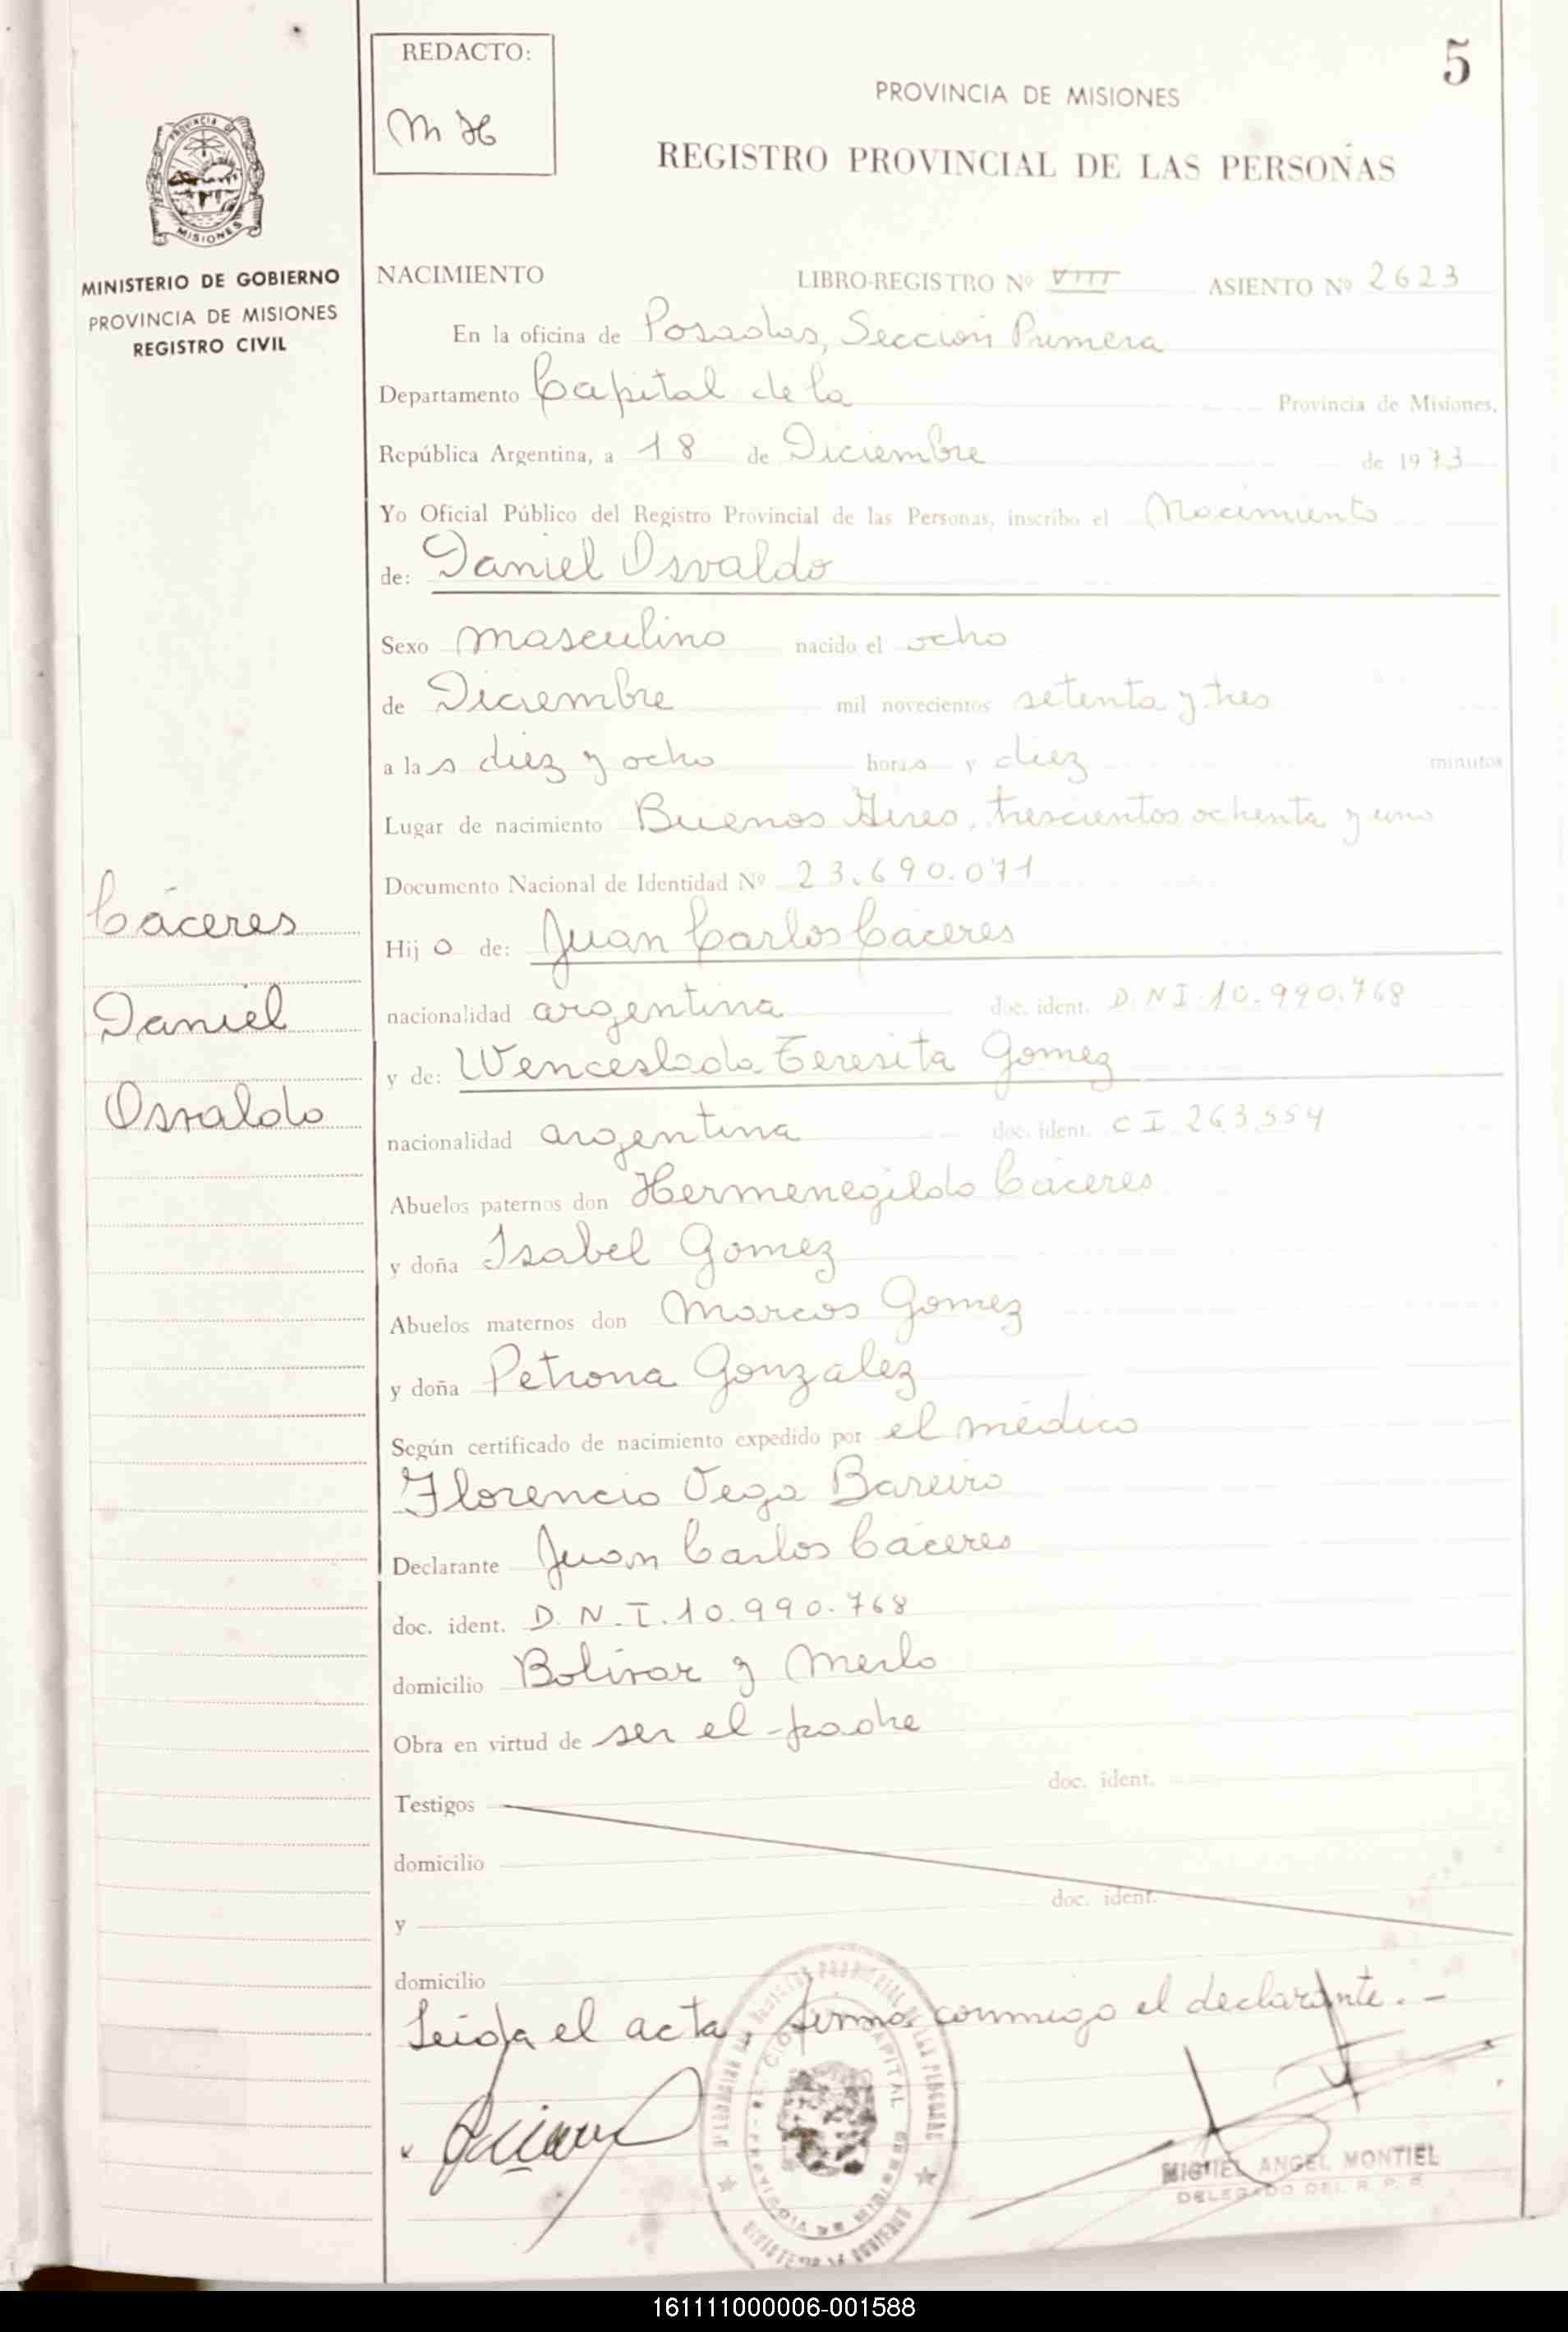 REDACTO:
M H
5
PROVINCIA DE MISIONES
REGISTRO PROVINCIAL DE LAS PERSONAS
PROVINCIA DE
MISIONES
MINISTERIO DE GOBIERNO
PROVINCIA DE MISIONES
REGISTRO CIVIL
NACIMIENTO LIBRO-REGISTRO Nº VIII ASIENTO Nº 2623
En la oficina de Posadas, Sección Primera
Departamento Capital de la Provincia de Misiones,
República Argentina, a 18 de Diciembre de 1973
Yo Oficial Público del Registro Provincial de las Personas, inscribo el Nacimiento
de: Daniel Osvaldo
Sexo masculino nacido el ocho
de Diciembre mil novecientos setenta y tres
a las diez y ocho horas y diez minutos
Lugar de nacimiento Buenos Aires, trescientos ochenta y uno
Documento Nacional de Identidad Nº 23.690.071
Cáceres
Hijo de: Juan Carlos Cáceres
Daniel
nacionalidad argentina doc. ident. D.N.I. 10.990.768
y de: Wenceslada Teresita Gomez
Osvaldo
nacionalidad argentina doc. ident. C I 263.554
Abuelos paternos don Hermenegildo Cáceres
y doña Isabel Gomez
Abuelos maternos don Marcos Gomez
y doña Petrona Gonzalez
Según certificado de nacimiento expedido por el médico
Florencio Vega Bareiro
Declarante Juan Carlos Cáceres
doc. ident. D.N.I.10.990.768
domicilio Bolívar y Merlo
Obra en virtud de ser el padre
doc. ident.
Testigos
domicilio
doc. ident.
y
domicilio
Leída el acta, firma conmigo el declarante.-
MIGUEL ANGEL MONTIEL
DELEGADO DEL R. P. P.
161111000006-001588